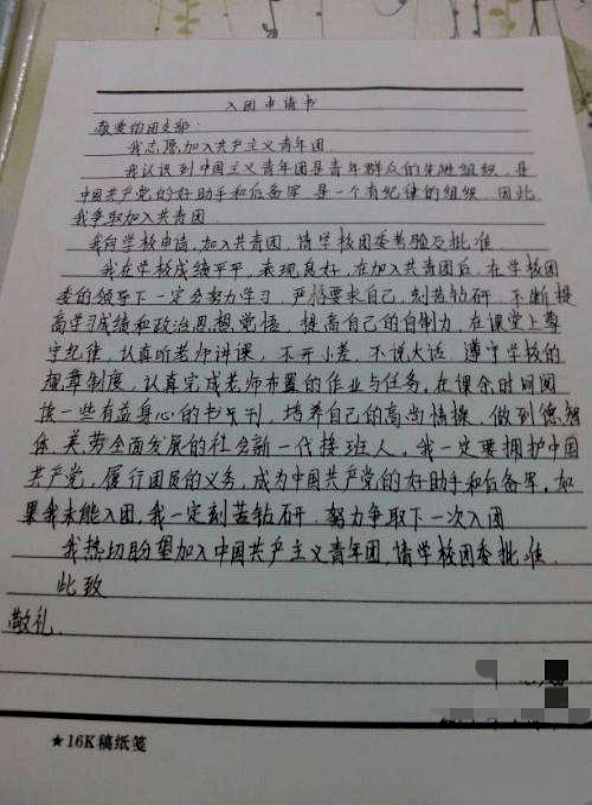 入团申请书
敬爱的团支部：
我志愿加入共产主义青年团
我认识到中国主义青年团是青年群众的先进组织，是
中国共产党的好助手和后备军，是一个有纪律的组织，因此
我争取加入共青团
我向学校申请，加入共青团，请学校团委考验及批准
我在学校成绩平平，表现良好，在加入共青团后，在学校团
委的领导下一定会努力学习，严格要求自己，刻苦钻研，不断提
高学习成绩和政治思想觉悟，提高自己的自制力，在课堂上尊
守纪律，认真听老师讲课，不开小差，不说大话，遵守学校的
规章制度，认真完成老师布置的作业与任务，在课余时间阅
读一些有益身心的书刊，培养自己的高尚情操，做到德智
体、美、劳全面发展的社会新一代接班人，我一定要拥护中国
共产党，履行团员的义务，成为中国共产党的好助手和后备军，如
果我未能入团，我一定刻苦钻研，努力争取下一次入团
我热切盼望加入中国共产主义青年团，请学校团委批准
此致
敬礼
★16K稿纸笺